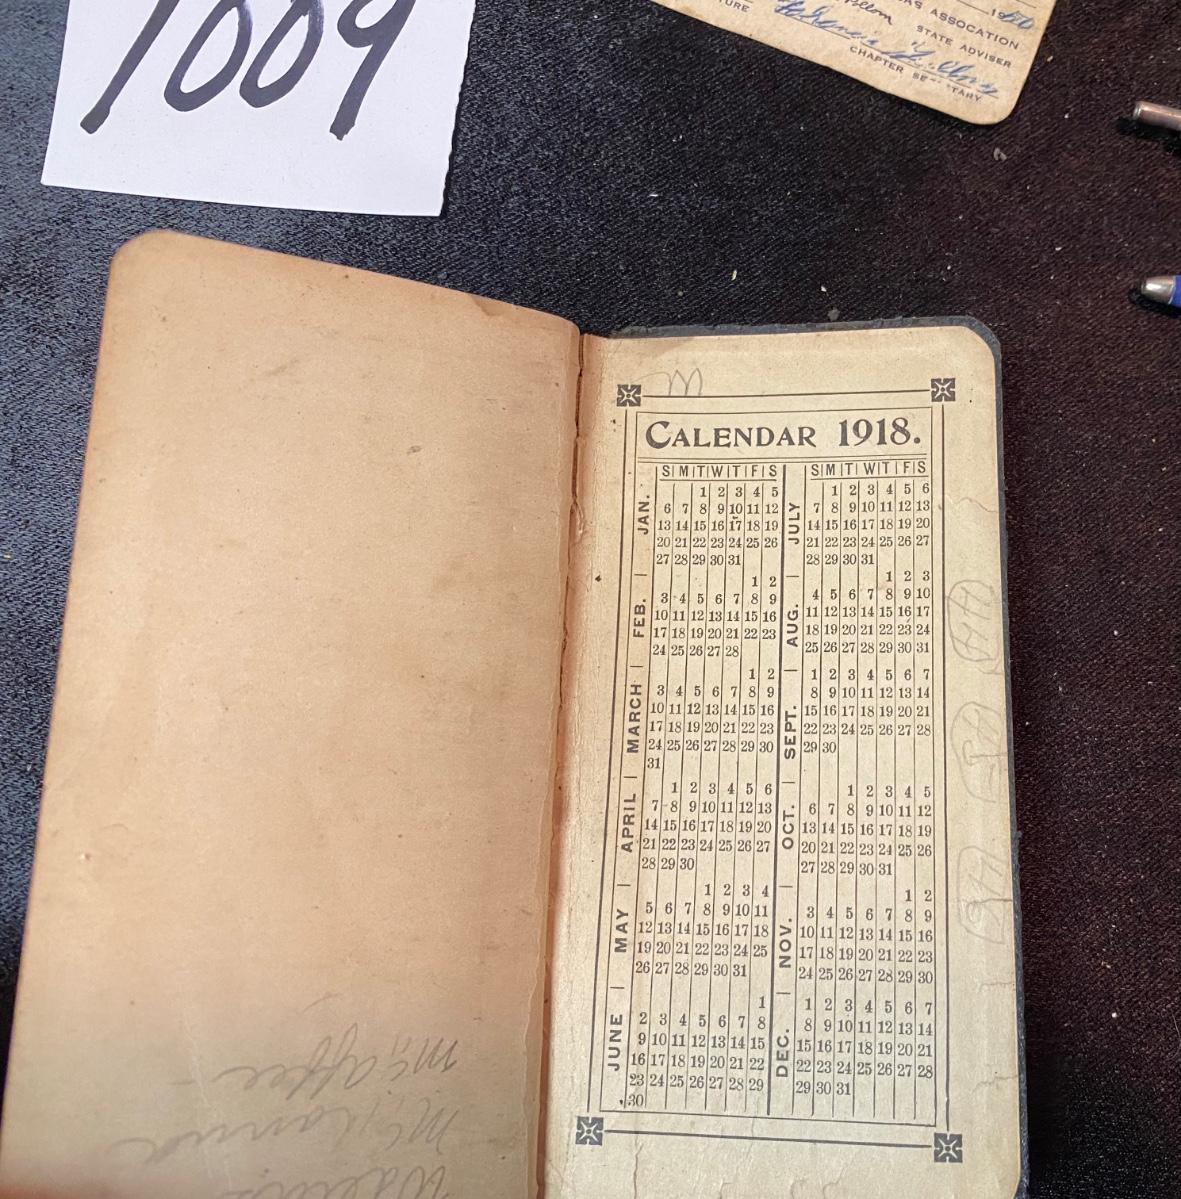 1009
ASSOCATION
STATE ADVISER
CHAPTER
CALENDAR 1918.
S M T W T F S
JAN.
1 2 3 4 5
6 7 8 9 10 11 12
13 14 15 16 17 18 19
20 21 22 23 24 25 26
27 28 29 30 31
FEB.
1 2
3 4 5 6 7 8 9
10 11 12 13 14 15 16
17 18 19 20 21 22 23
24 25 26 27 28
MARCH
1 2
3 4 5 6 7 8 9
10 11 12 13 14 15 16
17 18 19 20 21 22 23
24 25 26 27 28 29 30
31
APRIL
1 2 3 4 5 6
7 8 9 10 11 12 13
14 15 16 17 18 19 20
21 22 23 24 25 26 27
28 29 30
MAY
1 2 3 4
5 6 7 8 9 10 11
12 13 14 15 16 17 18
19 20 21 22 23 24 25
26 27 28 29 30 31
JUNE
1
2 3 4 5 6 7 8
9 10 11 12 13 14 15
16 17 18 19 20 21 22
23 24 25 26 27 28 29
30
S M T W T F S
JULY
1 2 3 4 5 6
7 8 9 10 11 12 13
14 15 16 17 18 19 20
21 22 23 24 25 26 27
28 29 30 31
AUG.
1 2 3
4 5 6 7 8 9 10
11 12 13 14 15 16 17
18 19 20 21 22 23 24
25 26 27 28 29 30 31
SEPT.
1 2 3 4 5 6 7
8 9 10 11 12 13 14
15 16 17 18 19 20 21
22 23 24 25 26 27 28
29 30
OCT.
1 2 3 4 5
6 7 8 9 10 11 12
13 14 15 16 17 18 19
20 21 22 23 24 25 26
27 28 29 30 31
NOV.
1 2
3 4 5 6 7 8 9
10 11 12 13 14 15 16
17 18 19 20 21 22 23
24 25 26 27 28 29 30
DEC.
1 2 3 4 5 6 7
8 9 10 11 12 13 14
15 16 17 18 19 20 21
22 23 24 25 26 27 28
29 30 31